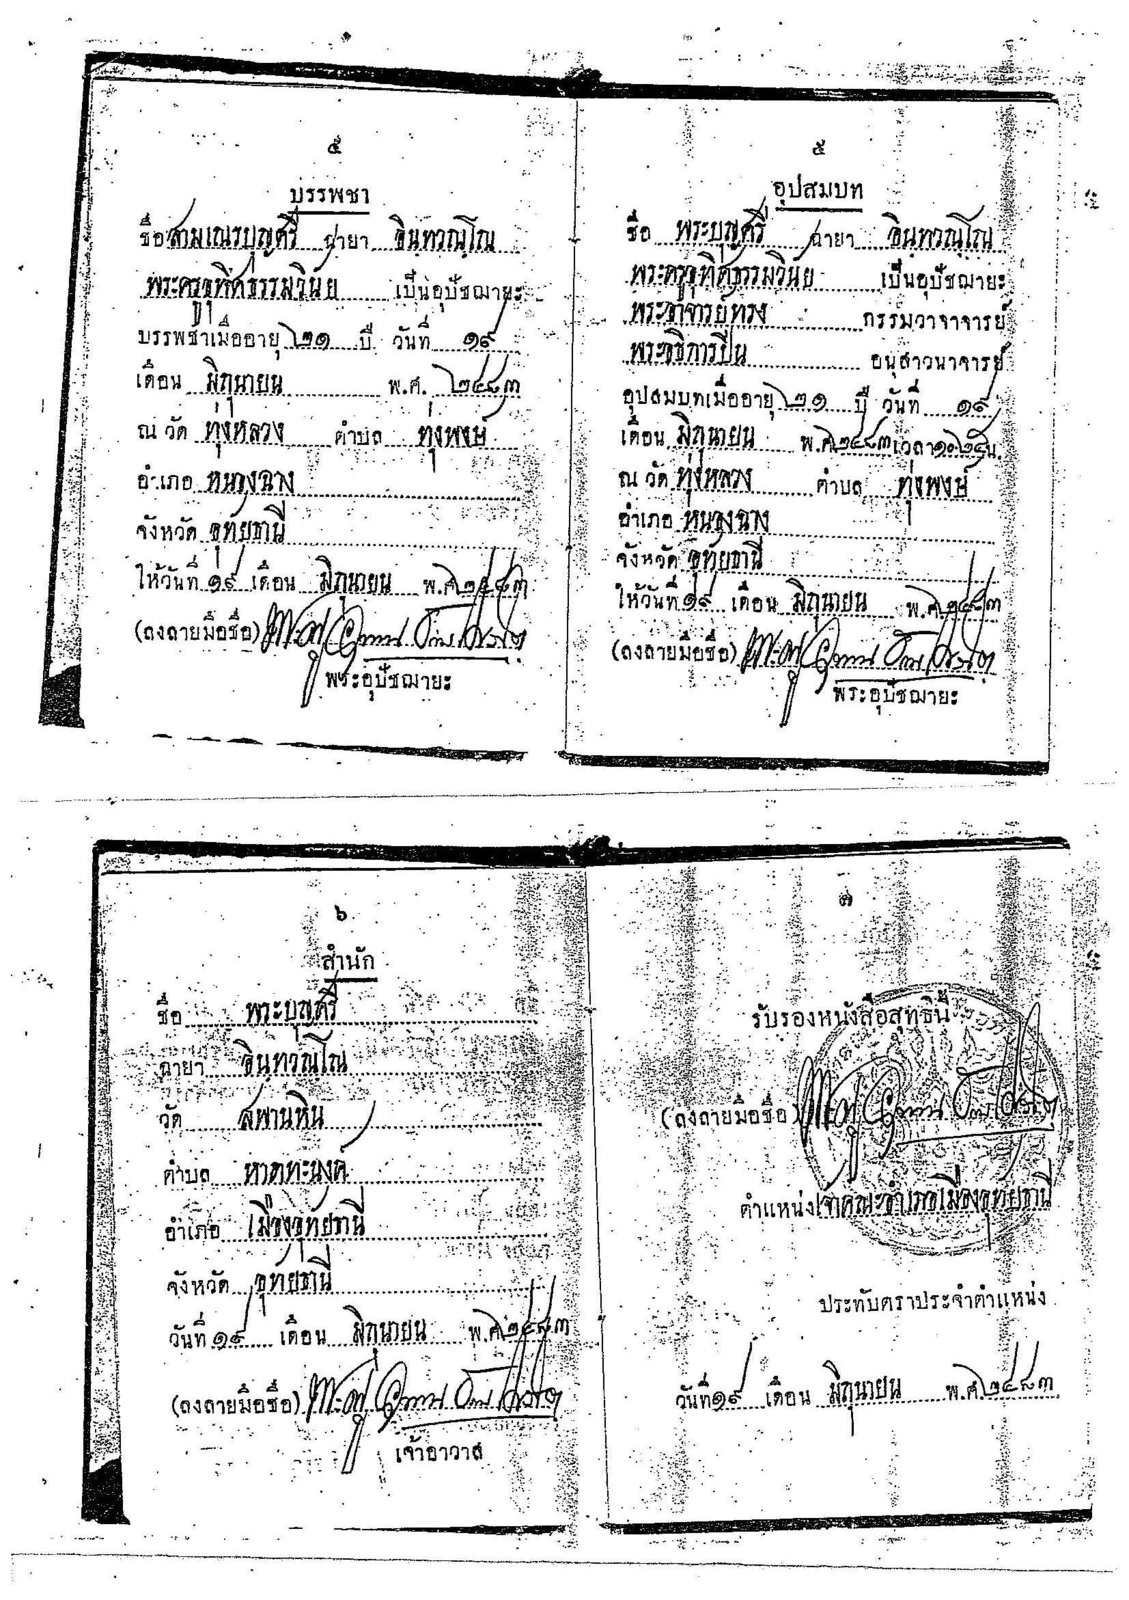 ๔
บรรพชา
ชื่อ สามเณรบุญศรี ฉายา อินฺทวณฺโณ
พระครูอุทิศธรรมวินัย เป็นอุปัชฌายะ
บรรพชาเมื่ออายุ ๒๑ ปี วันที่ ๑๙
เดือน มิถุนายน พ.ศ. ๒๔๘๓
ณ วัด ทุ่งหลวง ตำบล ทุ่งพงษ์
อำเภอ หนองฉาง
จังหวัด อุทัยธานี
ให้วันที่ ๑๙ เดือน มิถุนายน พ.ศ. ๒๔๘๓
(ลงลายมือชื่อ)
พระอุปัชฌายะ
๕
อุปสมบท
ชื่อ พระบุญศรี ฉายา อินฺทวณฺโณ
พระครูอุทิศธรรมวินัย เป็นอุปัชฌายะ
พระอาจารย์ทรง กรรมวาจาจารย์
พระอธิการปั่น อนุสาวนาจารย์
อุปสมบทเมื่ออายุ ๒๑ ปี วันที่ ๑๙
เดือน มิถุนายน พ.ศ. ๒๔๘๓ เวลา
ณ วัด ทุ่งหลวง ตำบล ทุ่งพงษ์
อำเภอ หนองฉาง
จังหวัด อุทัยธานี
ให้วันที่ ๑๙ เดือน มิถุนายน พ.ศ. ๒๔๘๓
(ลงลายมือชื่อ)
พระอุปัชฌายะ
๖
สำนัก
ชื่อ พระบุญศรี
ฉายา อินฺทวณฺโณ
วัด สพานหิน
ตำบล หาดทะนงค์
อำเภอ เมืองอุทัยธานี
จังหวัด อุทัยธานี
วันที่ ๑๙ เดือน มิถุนายน พ.ศ. ๒๔๘๓
(ลงลายมือชื่อ)
เจ้าอาวาส
๗
รับรองหนังสือสุทธินี้
(ลงลายมือชื่อ)
ตำแหน่ง เจ้าคณะอำเภอเมืองอุทัยธานี
ประทับตราประจำตำแหน่ง
วันที่ ๑๙ เดือน มิถุนายน พ.ศ. ๒๔๘๓